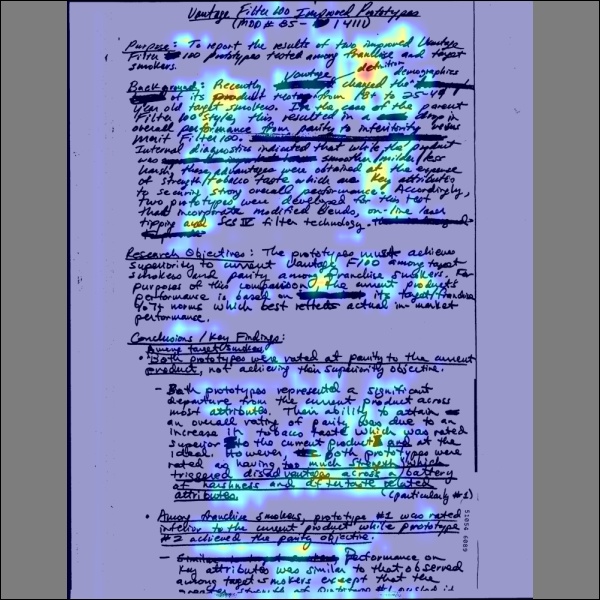 Vantage Filter 100 Improved Prototypes
(MDD # 85 - 1411)
Purpose: To report the results of two improved Vantage
Filter 100 prototypes tested among franchise and target
smokers.
Background: Recently, Vantage changed the definition demographics
of its product testing from 18+ to 25-49
year old target smokers. In the case of the parent
Filter 100 style, this resulted in a drop in
overall performance from parity to inferiority versus
Merit Filter 100.
Internal diagnostics indicated that while the product
was smoother/milder/less
harsh, these advantages were obtained at the expense
of strength/tobacco taste which are key attributes
to securing strong overall performance. Accordingly,
two prototypes were developed for this test
that incorporate modified blends, on-line laser
tipping and filter technology.
Research Objectives: The prototypes must achieve
superiority to current Vantage F100 among target
smokers and parity among franchise smokers. For
purposes of this comparison, the current product's
performance is based on its target/franchise
norms which best reflects actual in-market
performance.
Conclusions/Key Findings:
Among target smokers
• Both prototypes were rated at parity to the current
product, not achieving their superiority objective.
- Both prototypes represented a significant
departure from the current product across
most attributes. Their ability to attain
an overall rating of parity was due to an
increase in tobacco taste which was rated
superior to the current product and at the
ideal. However both prototypes were
rated as having too much strength which
triggered disadvantages across a battery
of harshness and aftertaste related
attributes. (particularly #1)
• Among franchise smokers, prototype #1 was rated
inferior to the current product while prototype
#2 achieved the parity objective.
- Performance on
key attributes was similar to that observed
among target smokers except that the
greater strength of prototype #1 resulted in